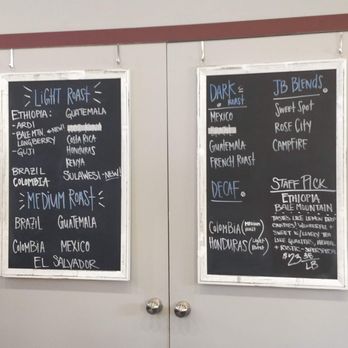 LIGHT ROAST
ETHIOPIA:
- ARDI
- BALE MTN NEW!
LONGBERRY
- GUJI
BRAZIL
COLOMBIA
GUATEMALA
COSTA RICA
HONDURAS
KENYA
SULAWESI - NEW!
MEDIUM ROAST
BRAZIL GUATEMALA
COLOMBIA MEXICO
EL SALVADOR
DARK ROAST
MEXICO
GUATEMALA
FRENCH ROAST
DECAF
COLOMBIA (MEDIUM ROAST)
HONDURAS (LIGHT ROAST)
JB BLENDS
SWEET SPOT
ROSE CITY
CAMPFIRE
STAFF PICK
ETHIOPIA
BALE MOUNTAIN
TASTES LIKE LEMON DROP
SWEET
LB